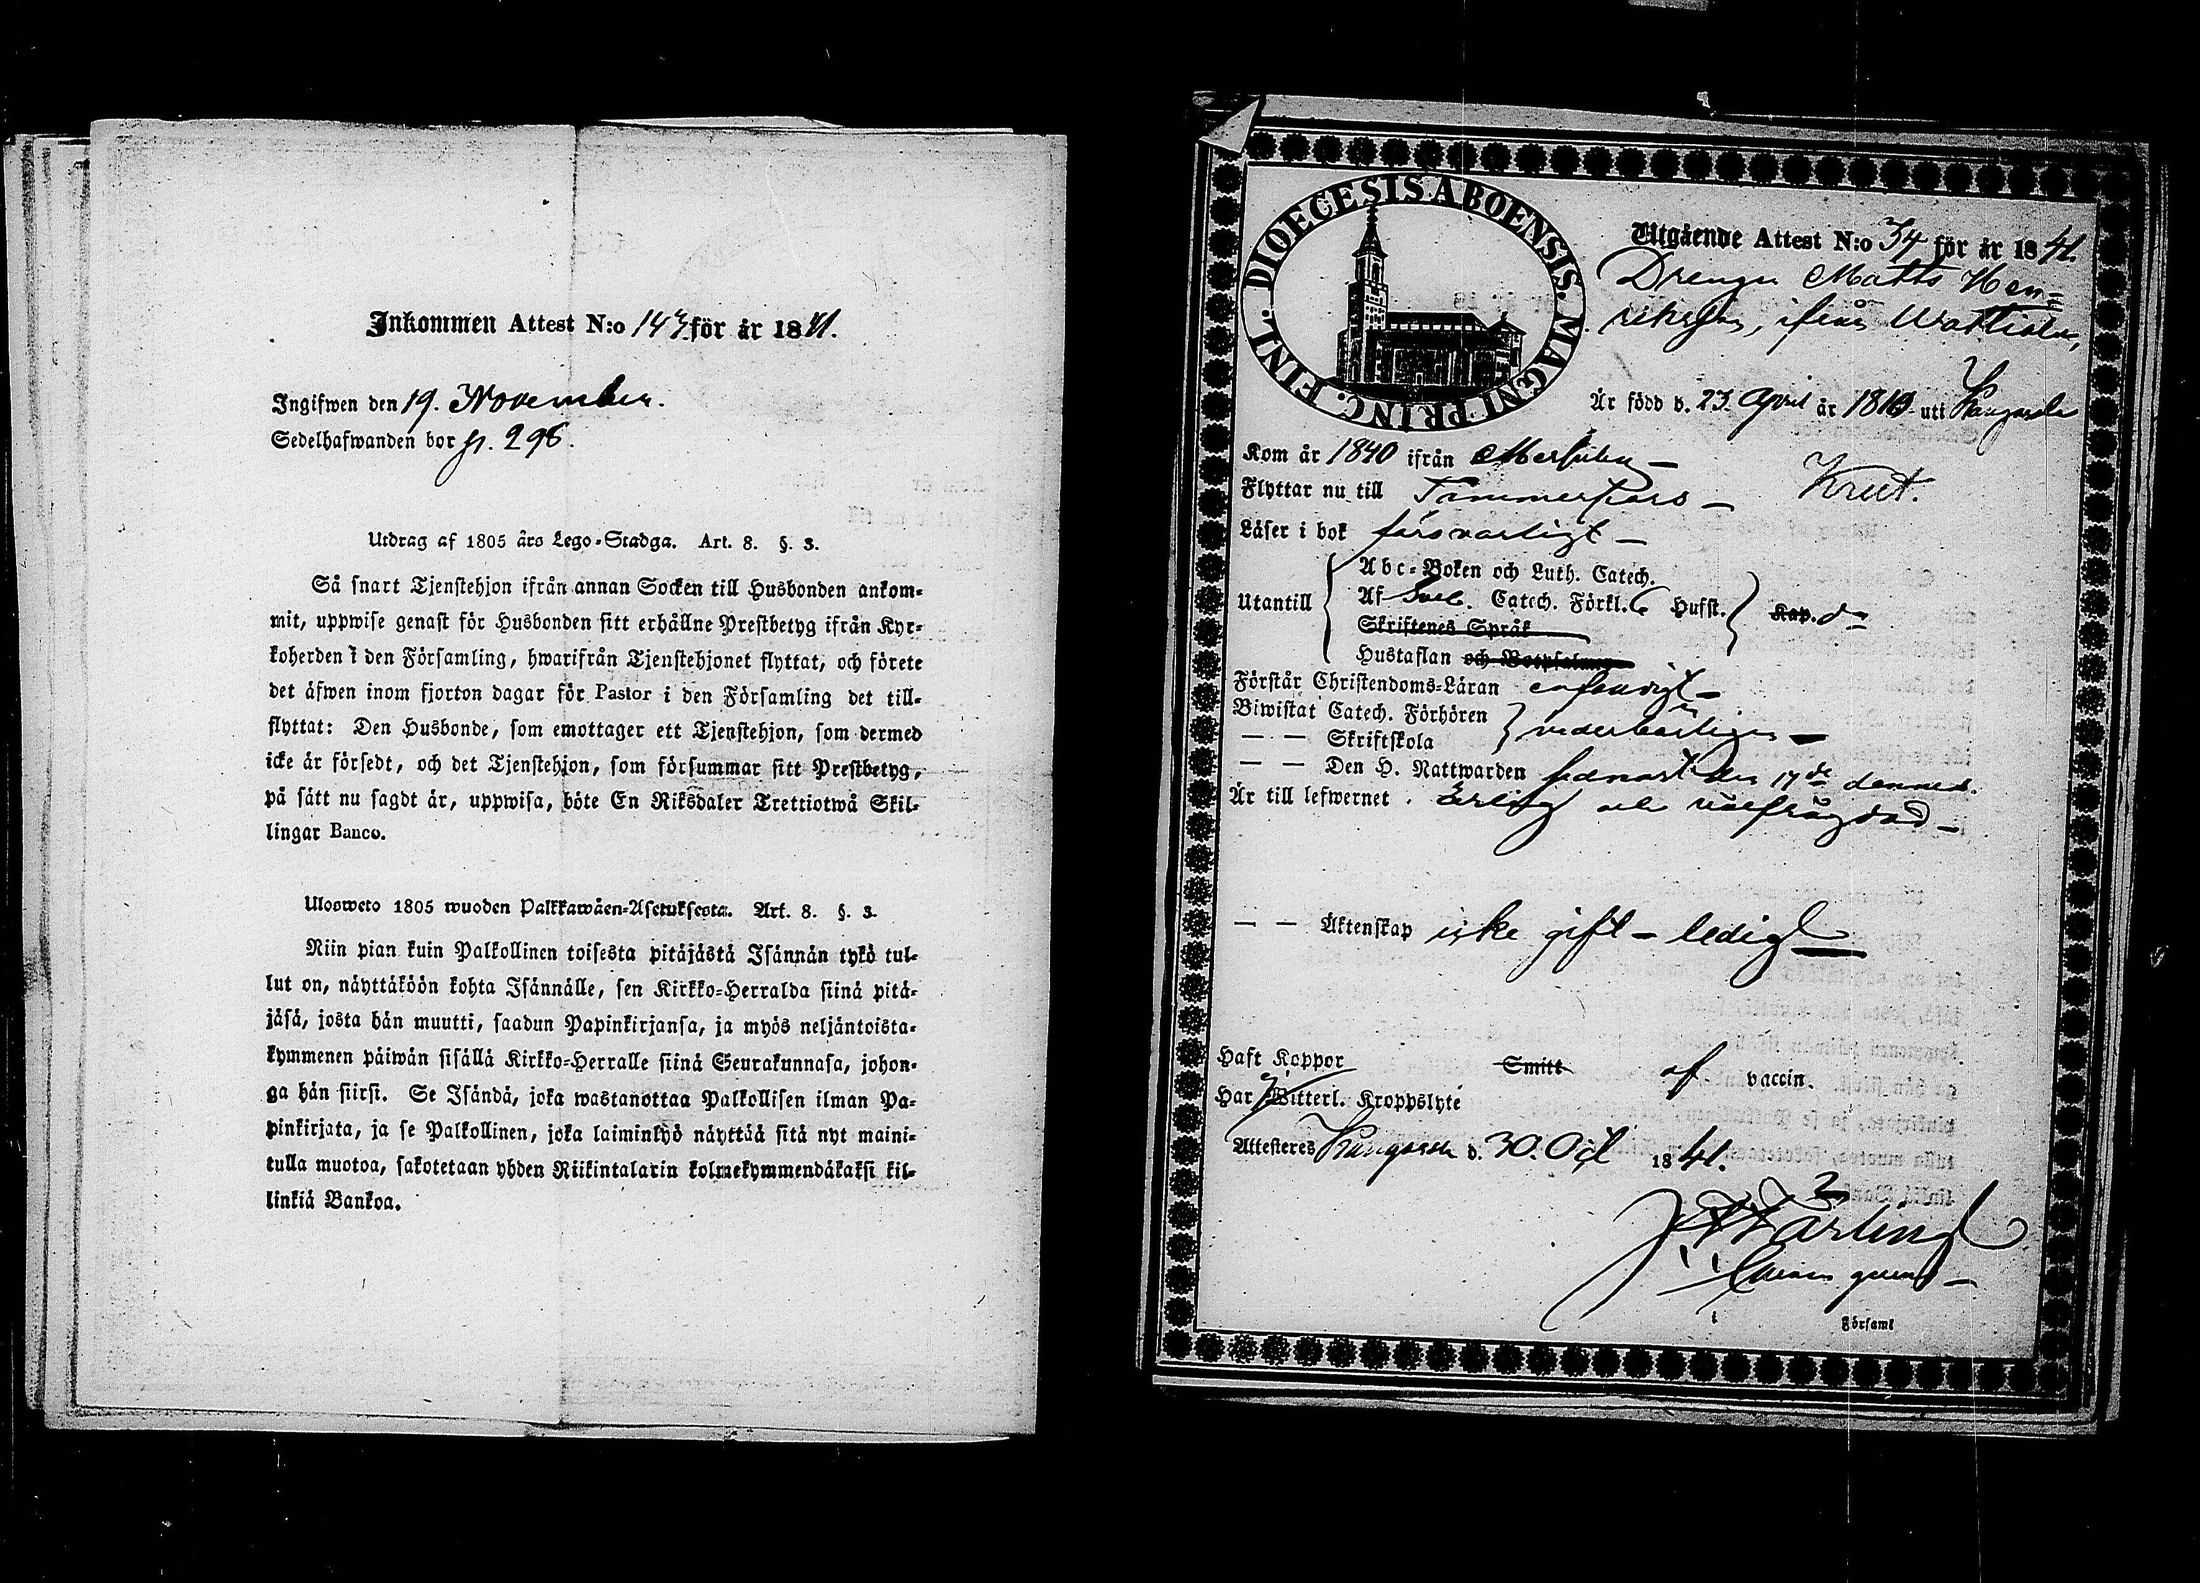 Inkommen Attest N:o 143 för år 1841.
Ingifwen den 19. November.
Sedelhafwanden bor p. 298.
Utdrag af 1805 års Lego-Stadga. Art. 8. §. 3.
Så snart Tjenstehjon ifrån annan Socken till Husbonden ankom-
mit, uppwise genast för Husbonden sitt erhållne Prestbetyg ifrån Kyr-
koherden i den Församling, hwarifrån Tjenstehjonet flyttat, och förete
det äfwen inom fjorton dagar för Pastor i den Församling det till-
flyttat: Den Husbonde, som emottager ett Tjenstehjon, som dermed
icke är försedt, och det Tjenstehjon, som försummar sitt Prestbetyg,
på sätt nu sagdt är, uppwisa, böte En Riksdaler Trettiotwå Skil-
lingar Banco.
Ulosweto 1805 wuoden Palkkawäen-Asetuksesta. Art. 8. §. 3.
Niin pian kuin Palkollinen toisesta pitäjästä Isännän tykö tul-
lut on, näyttäköön kohta Isännälle, sen Kirkko-Herralda siinä pitä-
jäsä, josta hän muutti, saadun Papinkirjansa, ja myös neljäntoista-
kymmenen päiwän sisällä Kirkko-Herralle siinä Seurakunnasa, johon-
ga hän siirsi. Se Isändä, joka wastanottaa Palkollisen ilman Pa-
pinkirjata, ja se Palkollinen, joka laiminlyö näyttää sitä nyt maini-
tulla muotoa, sakotetaan yhden Riikintalarin kolmekymmendäkaksi kil-
linkiä Bankoa.
DIOECESIS ABOENSIS. MAGNI PRINC. FINL.
Utgående Attest N:o 34 för år 1841.
Drengen Matts Hen=
riksson, ifrån Wattiala,
Är född d. 23. April år 1819 uti Kangasala
Kom år 1840 ifrån
Flyttar nu till Tammerfors – Krut.
Läser i bok försvarligt –
Utantill Abc-Boken och Luth. Catech.
Af Sveb. Catech. Förkl. Hufst. Kap.
Skriftenes Språk
Hustaflan och Botpsalmen
Förstår Christendoms-Läran enfaldigt –
Biwistat Catech. Förhören
— — Skriftskola vederbörligen –
— — Den H. Nattwarden sednast den 17de dennes.
Är till lefwernet ärlig och välfrägdad –
— — Äktenskap icke gift – ledig
Haft Koppor Smitt af vaccin.
Har Witterl. Kroppslyte
Attesteres Kangasala d. 30. Oct 1841.
Församl